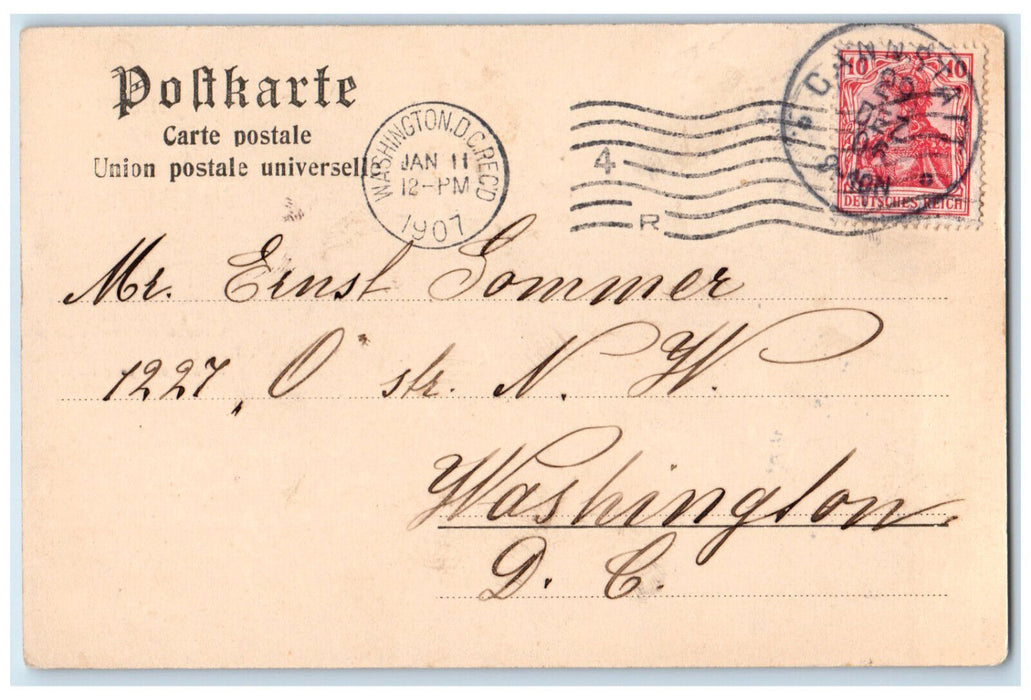 Postkarte
Carte postale
Union postale universelle
WASHINGTON.D.C.REC'D
JAN 11
12-PM
1907
4
R
CANNSTATT
10 10
DEUTSCHES REICH
Mr. Ernst Sommer
1227 „O" str. N. W.
Washington.
D. C.